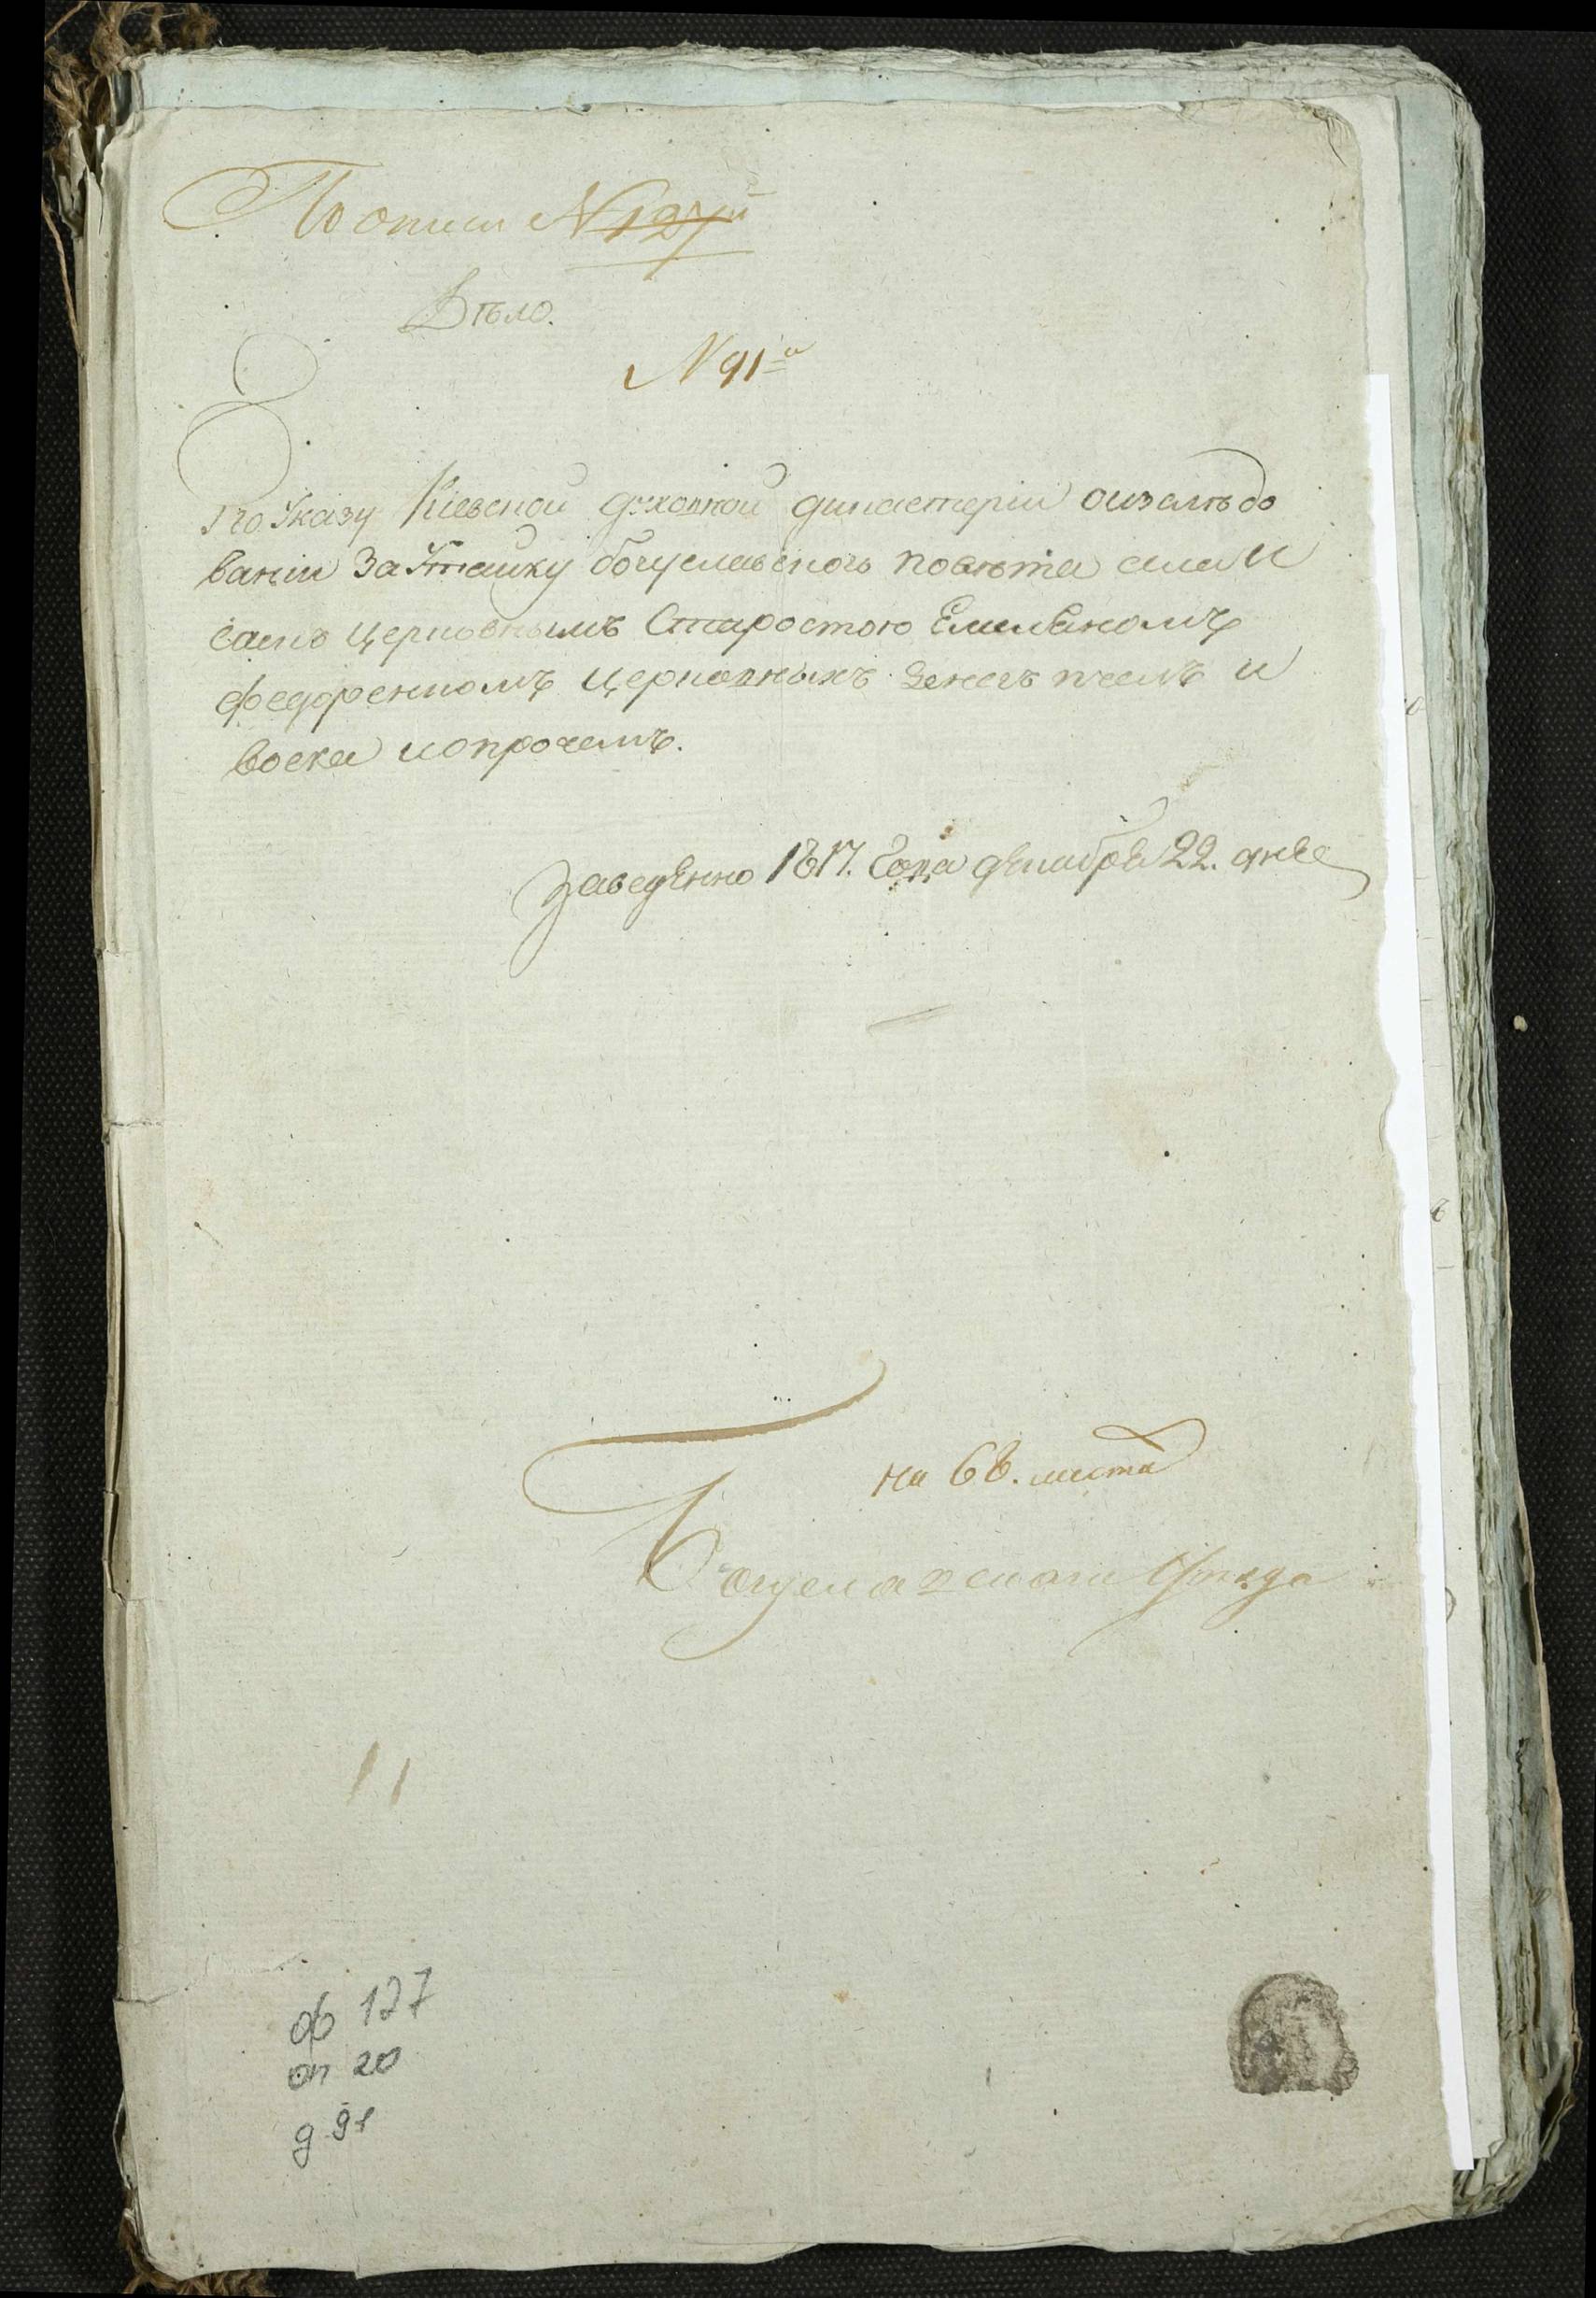 По описи N 127й
Дѣло.
N 91й
По Указу Кіевской духовной дикастеріи о изслѣдо
ваніи за Утайку богуславского повѣта села И
саекъ церковнымъ Старостою Емиліяномъ
федоренкомъ церковныхъ денегъ пчелъ и
воска и о прочемъ.
Заведенно 1817. Года декабря 22. дня
на 68. листа
Богуславского Уѣзда
ф 127
оп 20
д 91